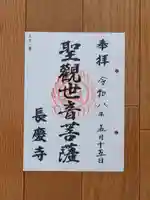 奉拝
令和八年五月十五日
聖觀世音菩薩
長慶寺